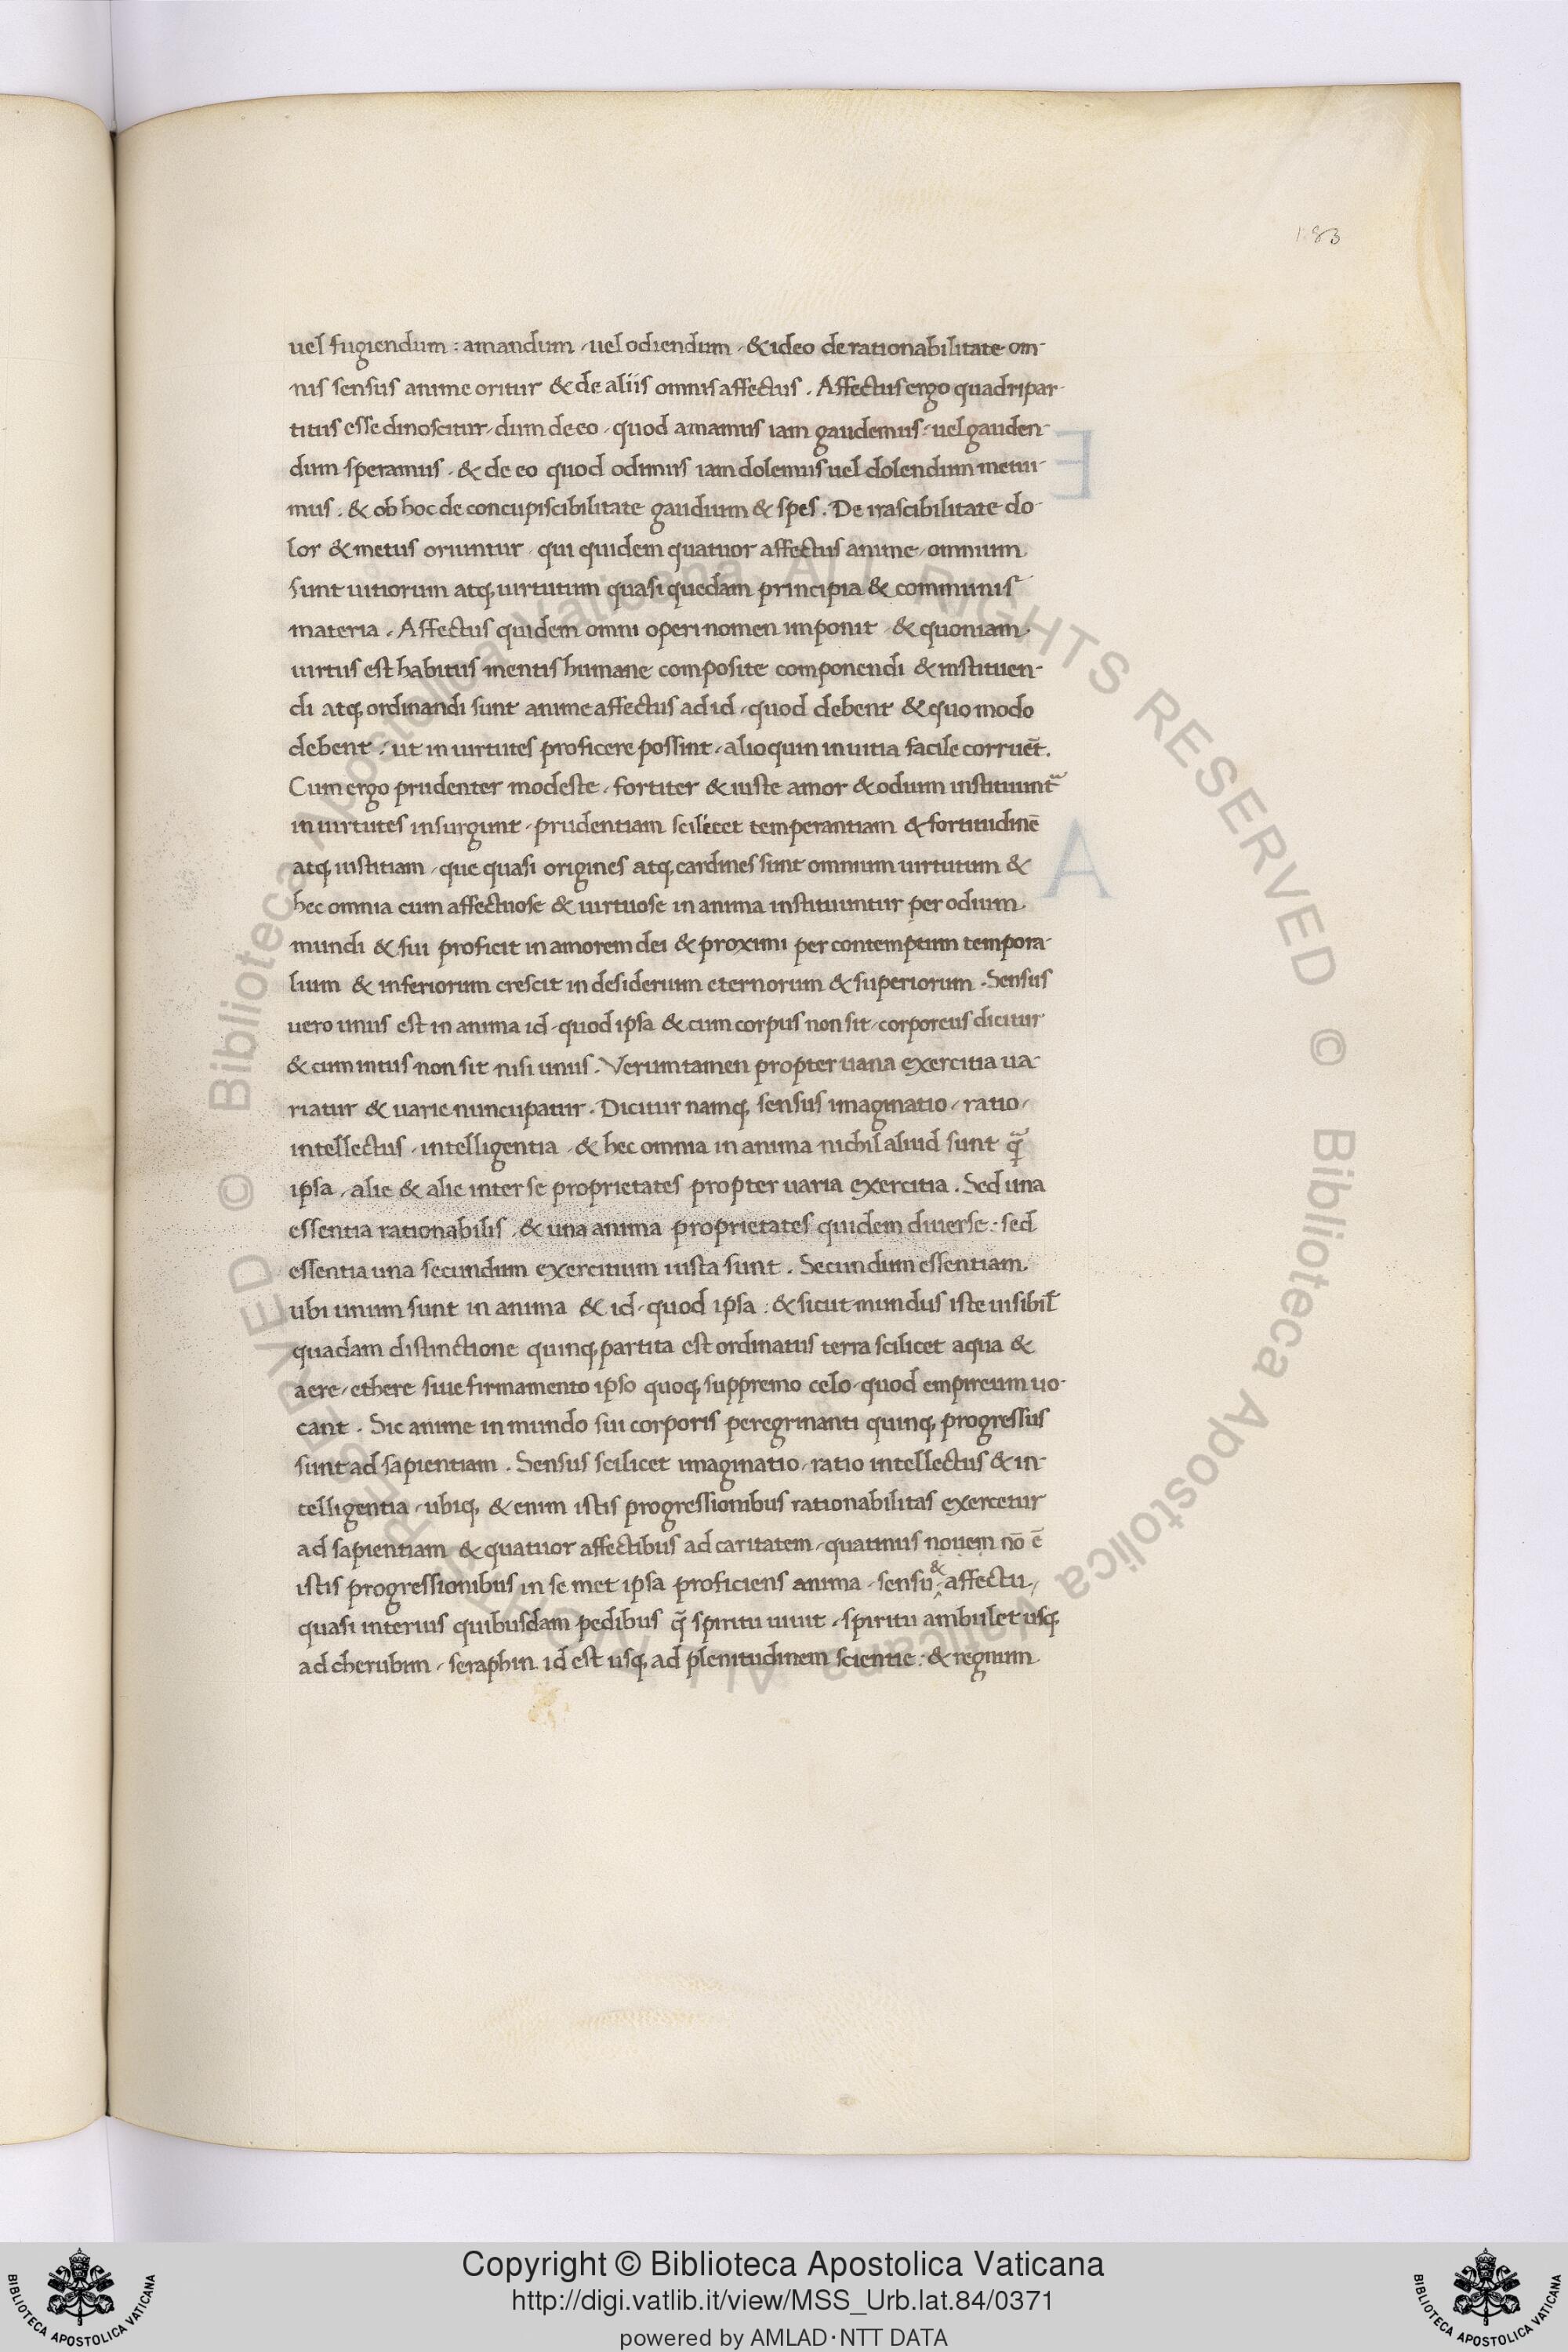 183
uel fugiendum : amandum , uel odiendum , & ideo de rationabilitate om-
nis sensus anime oritur & de aliis omnis affectus . Affectus ergo quadripar-
titus esse dinoscitur , dum de eo , quod amamus iam gaudemus : uel gauden-
dum speramus , & de eo quod odimus iam dolemus uel dolendum metui-
mus . & ob hoc de concupiscibilitate gaudium & spes . De irascibilitate do-
lor & metus oriuntur , qui quidem quatuor affectus anime , omnium
sunt uitiorum atq; uirtutum quasi quedam principia & communis
materia . Affectus quidem omni operi nomen imponit , & quoniam
uirtus est habitus mentis humane composite componendi & instituen-
di atq; ordinandi sunt anime affectus ad id , quod debent & quo modo
debent : ut in uirtutes proficere possint , alio quin in uitia facile corruēt .
Cum ergo prudenter modeste , fortiter & iuste amor & odium instituunt᷑
in uirtutes insurgunt , prudentiam scilicet temperantiam & fortitudinē
atq; iustitiam , que quasi origines atq; cardines sunt omnium uirtutum &
hec omnia cum affectuose & uirtuose in anima instituuntur per odium
mundi & sui proficit in amorem dei & proximi per contemptum tempora-
lium & inferiorum crescit in desiderium eternorum & superiorum . Sensus
uero unus est in anima id , quod ipsa & cum corpus non sit , corporeus dicitur
& cum intus non sit nisi unus . Verumtamen propter uana exercitia ua-
riatur & uarie nuncupatur . Dicitur namq; sensus imaginatio , ratio ,
intellectus , intelligentia , & hec omnia in anima nichil aliud sunt q̃
ipsa , alie & alie inter se proprietates propter uaria exercitia . Sed una
essentia rationabilis , & una anima proprietates quidem diuerse : sed
essentia una secundum exercitium iusta sunt . Secundum essentiam
ubi unum sunt in anima & id , quod ipsa : & sicut mundus iste uisibil̃
quadam distinctione quinq; partita est ordinatus terra scilicet aqua &
aere , ethere siue firmamento ipso quoq; suppremo celo , quod empireum uo-
cant . Sic anime in mundo sui corporis peregrinanti quinq; progressus
sunt ad sapientiam . Sensus scilicet imaginatio , ratio intellectus & in-
telligentia , ubiq; & enim istis progressionibus rationabilitas exercetur
ad sapientiam & quatuor affectibus ad caritatem , quatinus nouem nō ē
istis progressionibus in se met ipsa proficiens anima , sensu & affectu ,
quasi interius quibusdam pedibus q̃ spiritu uiuit , spiritu ambulet usq;
ad cherubim , seraphin id est usq; ad plenitudinem scientie : & regnum
Copyright © Biblioteca Apostolica Vaticana
http://digi.vatlib.it/view/MSS_Urb.lat.84/0371
powered by AMLAD·NTT DATA
BIBLIOTECA APOSTOLICA VATICANA
BIBLIOTECA APOSTOLICA VATICANA
© Biblioteca Apostolica Vaticana ALL RIGHTS RESERVED © Biblioteca Apostolica Vaticana ALL RIGHTS RESERVED